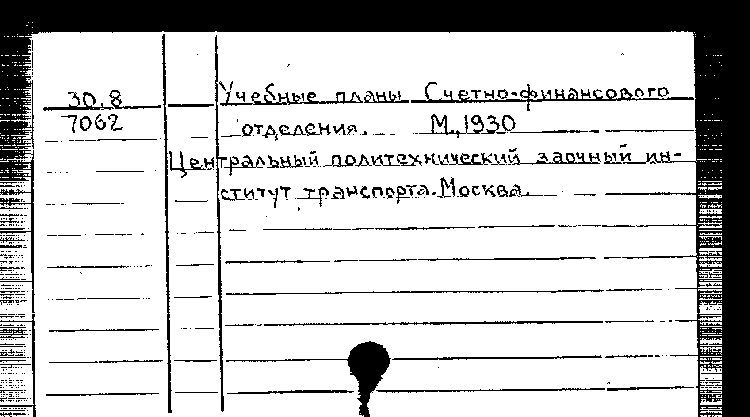 30.8 Учебные планы Счетно-финансового
7062 отделения. М., 1930
Центральный политехнический заочный ин-
ститут транспорта. Москва.